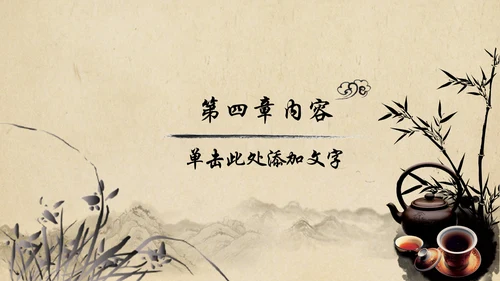 第四章内容
单击此处添加文字